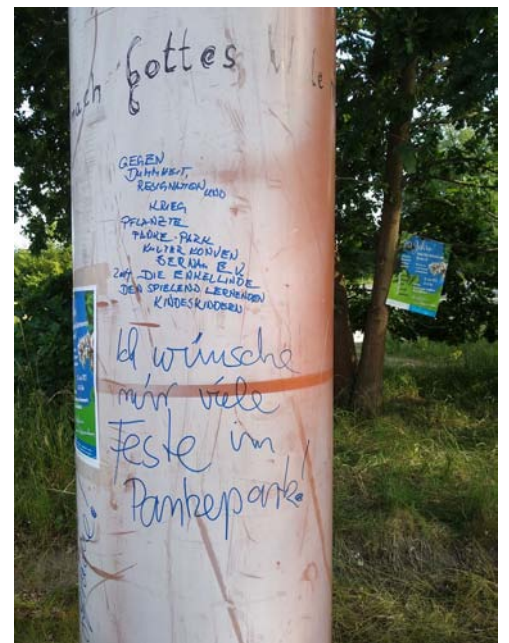 nach Gottes
GEGEN
DUMMHEIT,
RESIGNATION UND
KRIEG
PFLANZTE
PANKE-PARK
KULTUR KONVEN
BERNAU E.V.
DIE ENKELLINDE
DEN SPIELEND LERNENDEN
KINDESKINDERN
Ich wünsche
mir viele
Feste im
Pankepark!